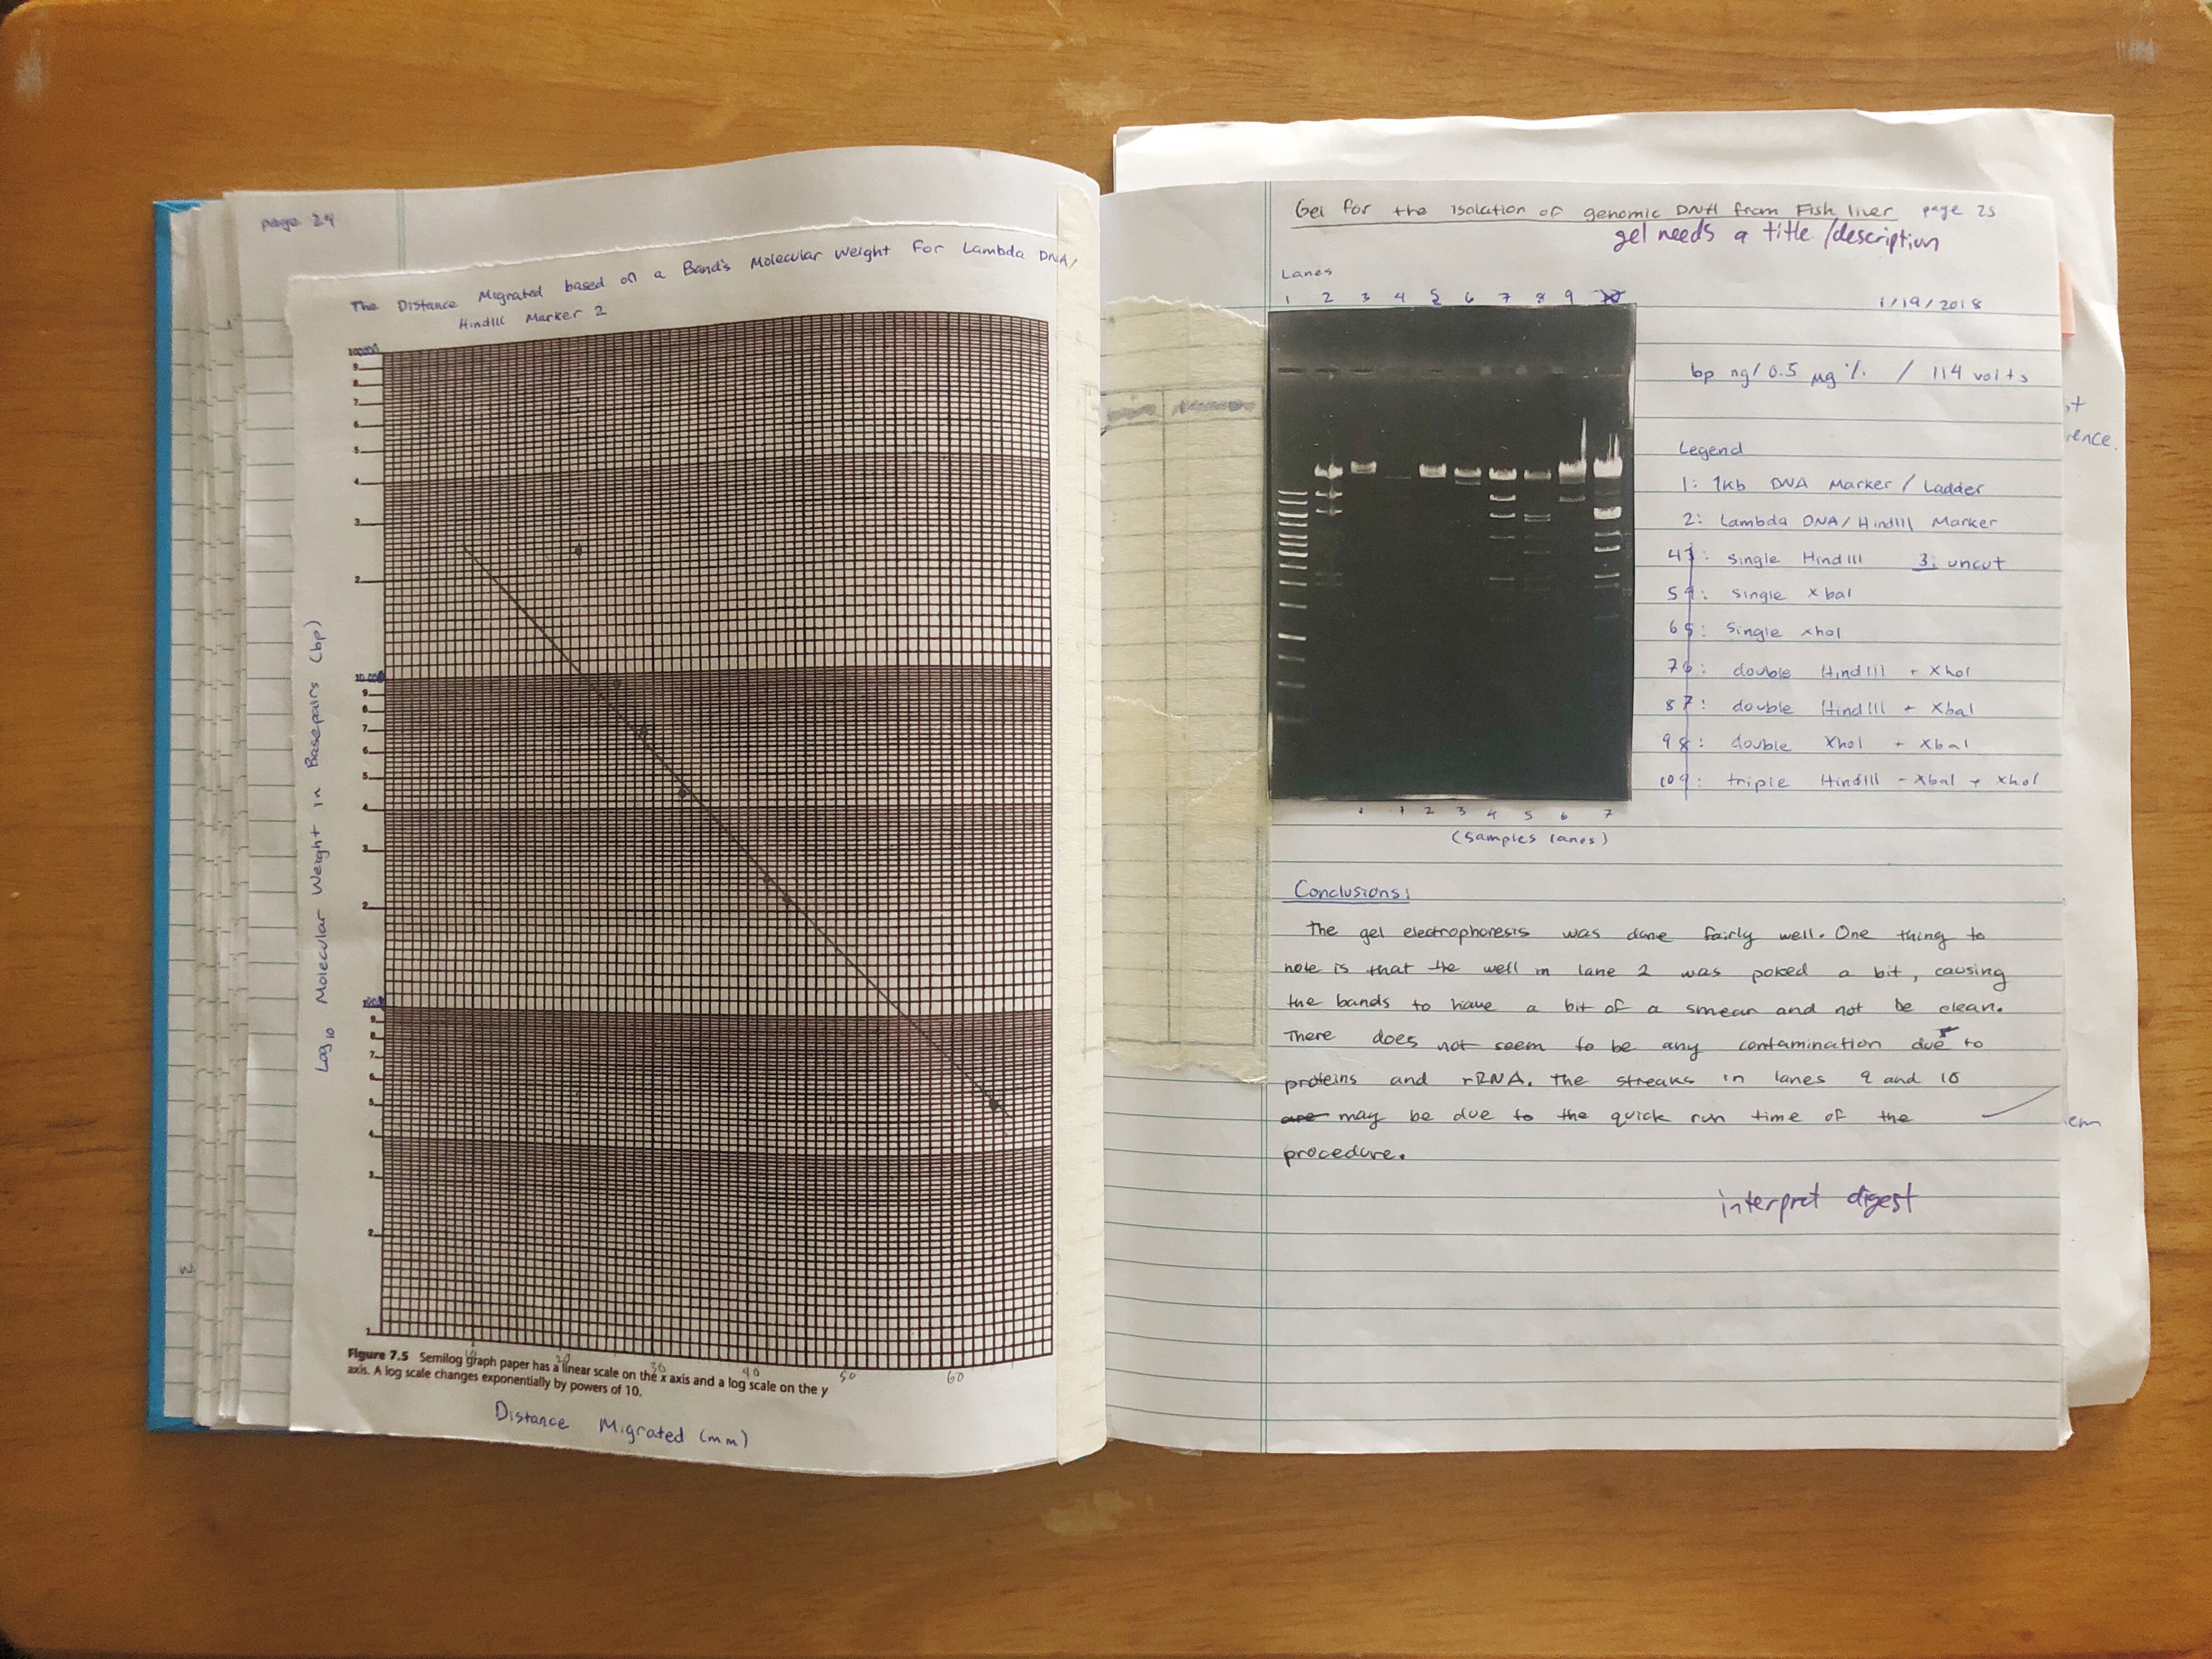 page 24
The Distance Migrated based on a Band's Molecular Weight for Lambda DNA/
HindIII Marker 2
Log10 Molecular Weight in Basepairs (bp)
100000
9
8
7
6
5
4
3
2
10 000
9
8
7
6
5
4
3
2
9
8
7
6
5
4
3
2
1
20 30 40 50 60
Figure 7.5 Semilog graph paper has a linear scale on the x axis and a log scale on the y
axis. A log scale changes exponentially by powers of 10.
Distance Migrated (mm)
Gel for the isolation of genomic DNA from Fish liver page 25
gel needs a title/description
Lanes
1 2 3 4 5 6 7 8 9 10
1/19/2018
bp ng/0.5 µg % / 114 volts
Legend
1: 1kb DNA Marker/Ladder
2: Lambda DNA/HindIII Marker
4 3: single HindIII 3: uncut
5 4: single xbaI
6 5: single xhoI
7 6: double HindIII + XhoI
8 7: double HindIII + XbaI
9 8: double XhoI + XbaI
10 9: triple HindIII - XbaI + XhoI
1 2 3 4 5 6 7
(samples lanes)
Conclusions:
The gel electrophoresis was done fairly well. One thing to
note is that the well in lane 2 was poked a bit, causing
the bands to have a bit of a smear and not be clean.
There does not seem to be any contamination due to
proteins and rRNA. The streaks in lanes 9 and 10
are may be due to the quick run time of the
procedure.
interpret digest
rence.
em